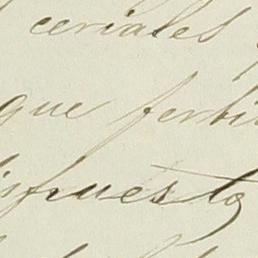 ceriales
que ferti
isfruesto